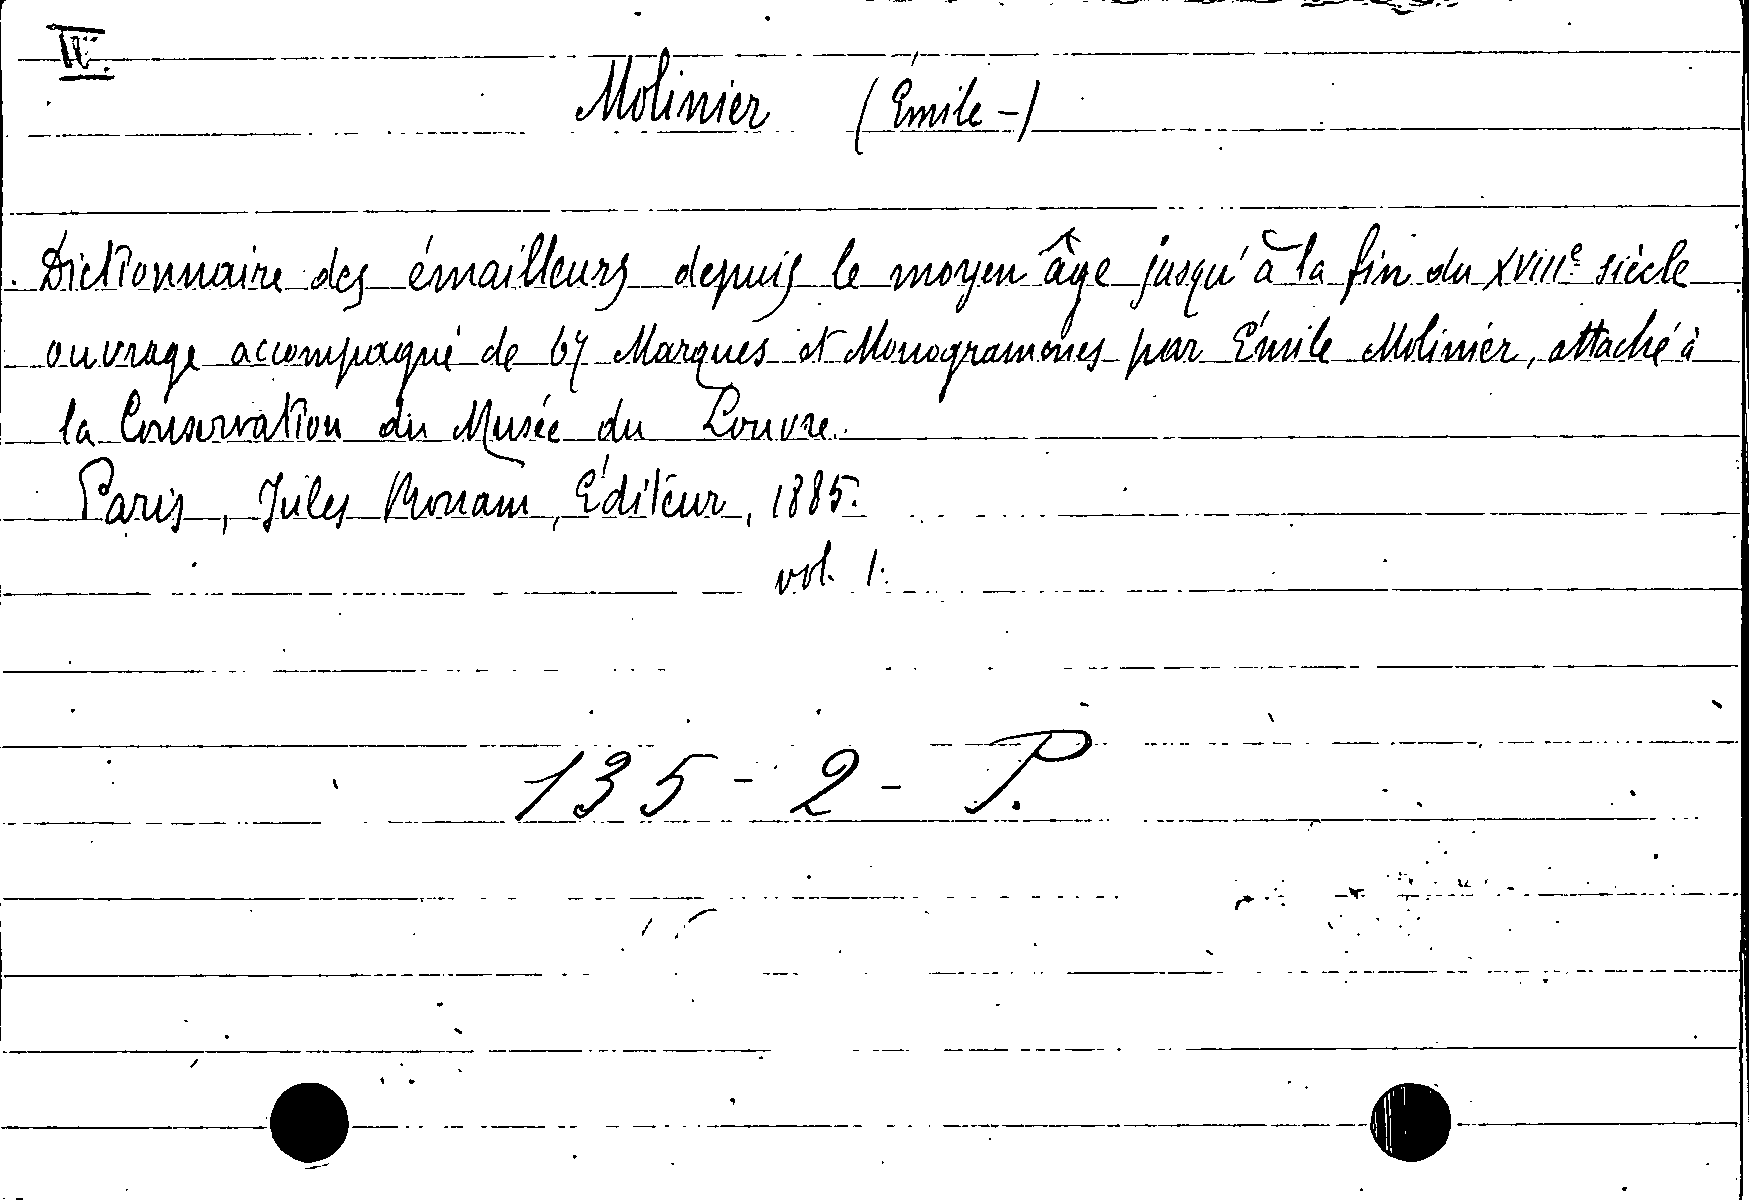 IV.
Molinier (Émile-)
Dictionnaire des émailleurs depuis le moyen âge jusqu'à la fin du XVIIIe siècle
ouvrage accompagné de 67 Marques et Monogrammes par Émile Molinier, attaché à
la Conservation du Musée du Louvre.
Paris, Jules Rouam, Éditeur, 1885.
vol. 1.
135-2-P.